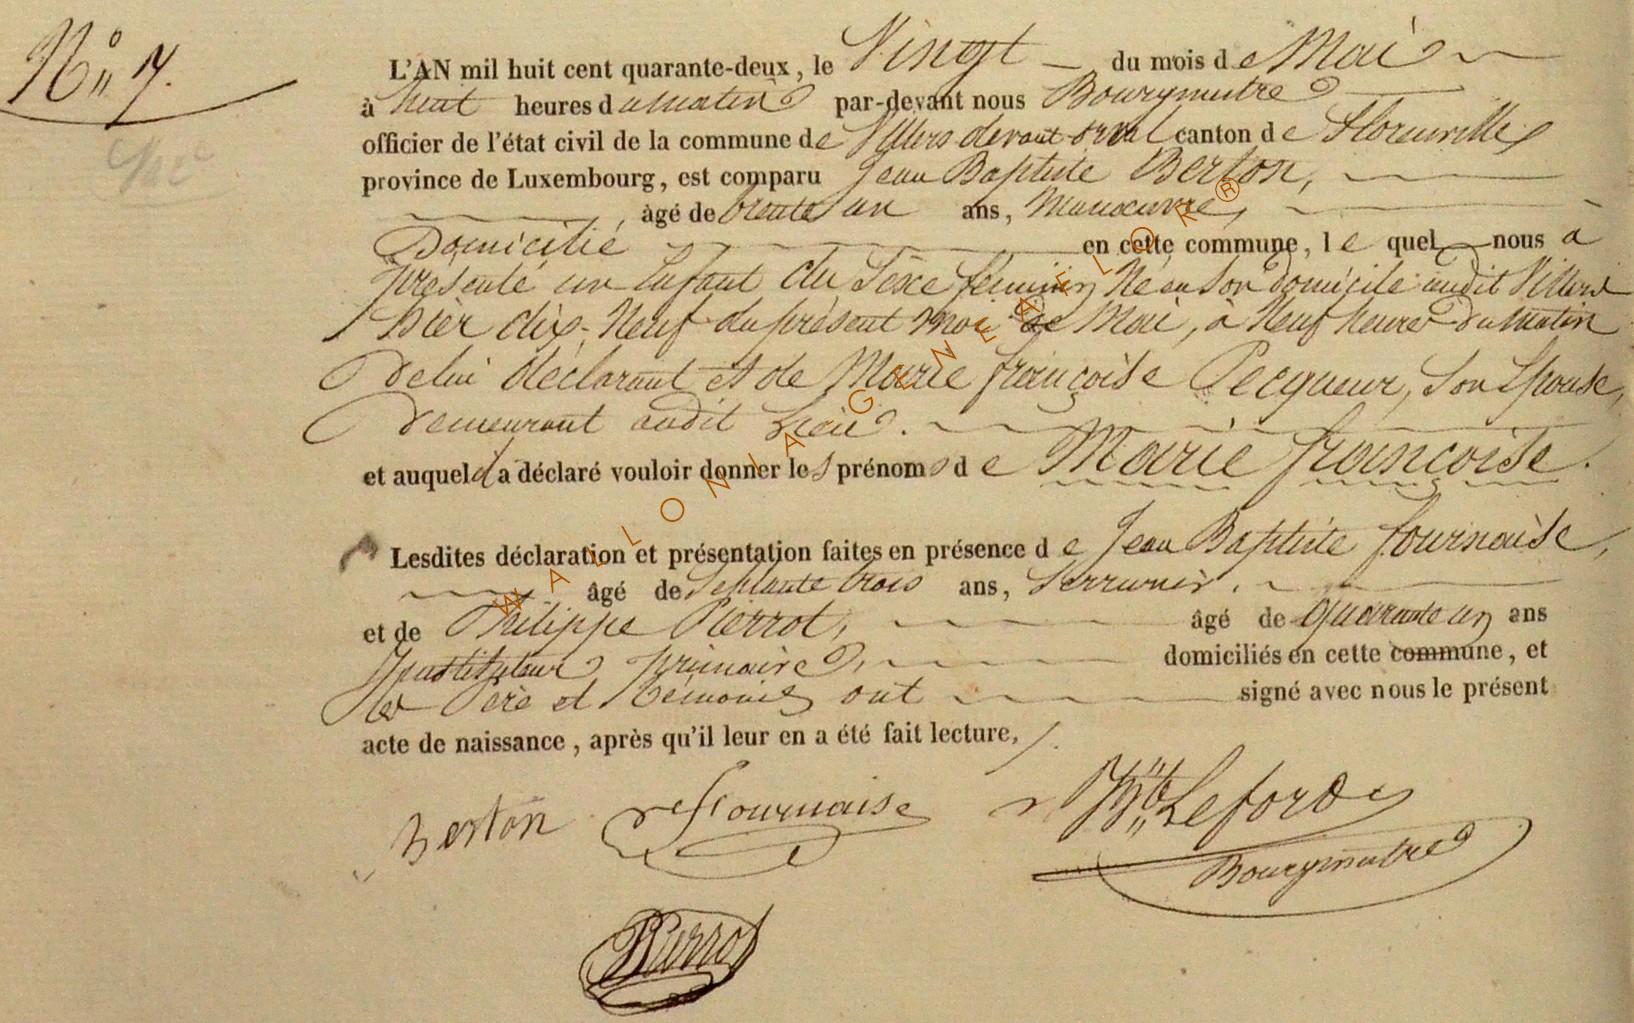 N° 7.
L'AN mil huit cent quarante-deux, le Vingt du mois de Mai
à huit heures du matin par-devant nous Bourgmestre
officier de l'état civil de la commune de Villers devant orval canton de Florenville
province de Luxembourg, est comparu Jean Baptiste Berton,
âgé de trente un ans, Manoeuvre,
Domicilié en cette commune, lequel nous a
présenté un Enfant du Sexe féminin, Né en Son domicile audit Villers
hier dix-Neuf du présent mois de Mai, à Neuf heures du matin
De lui déclarant et de Marie françoise Pecqueur, Son Epouse,
Demeurant audit Lieu.
et auquel il a déclaré vouloir donner les prénoms de Marie françoise.
Lesdites déclaration et présentation faites en présence de Jean Baptiste fournaise,
âgé de Septante trois ans, Serrurier,
et de Philippe Pierrot, âgé de quarante un ans
Instituteur primaire, domiciliés en cette commune, et
les Père et témoins ont signé avec nous le présent
acte de naissance, après qu'il leur en a été fait lecture,
Berton Fournaise Leford
Bourgmestre
Pierrot
WALLONIA GENEAFLOR®